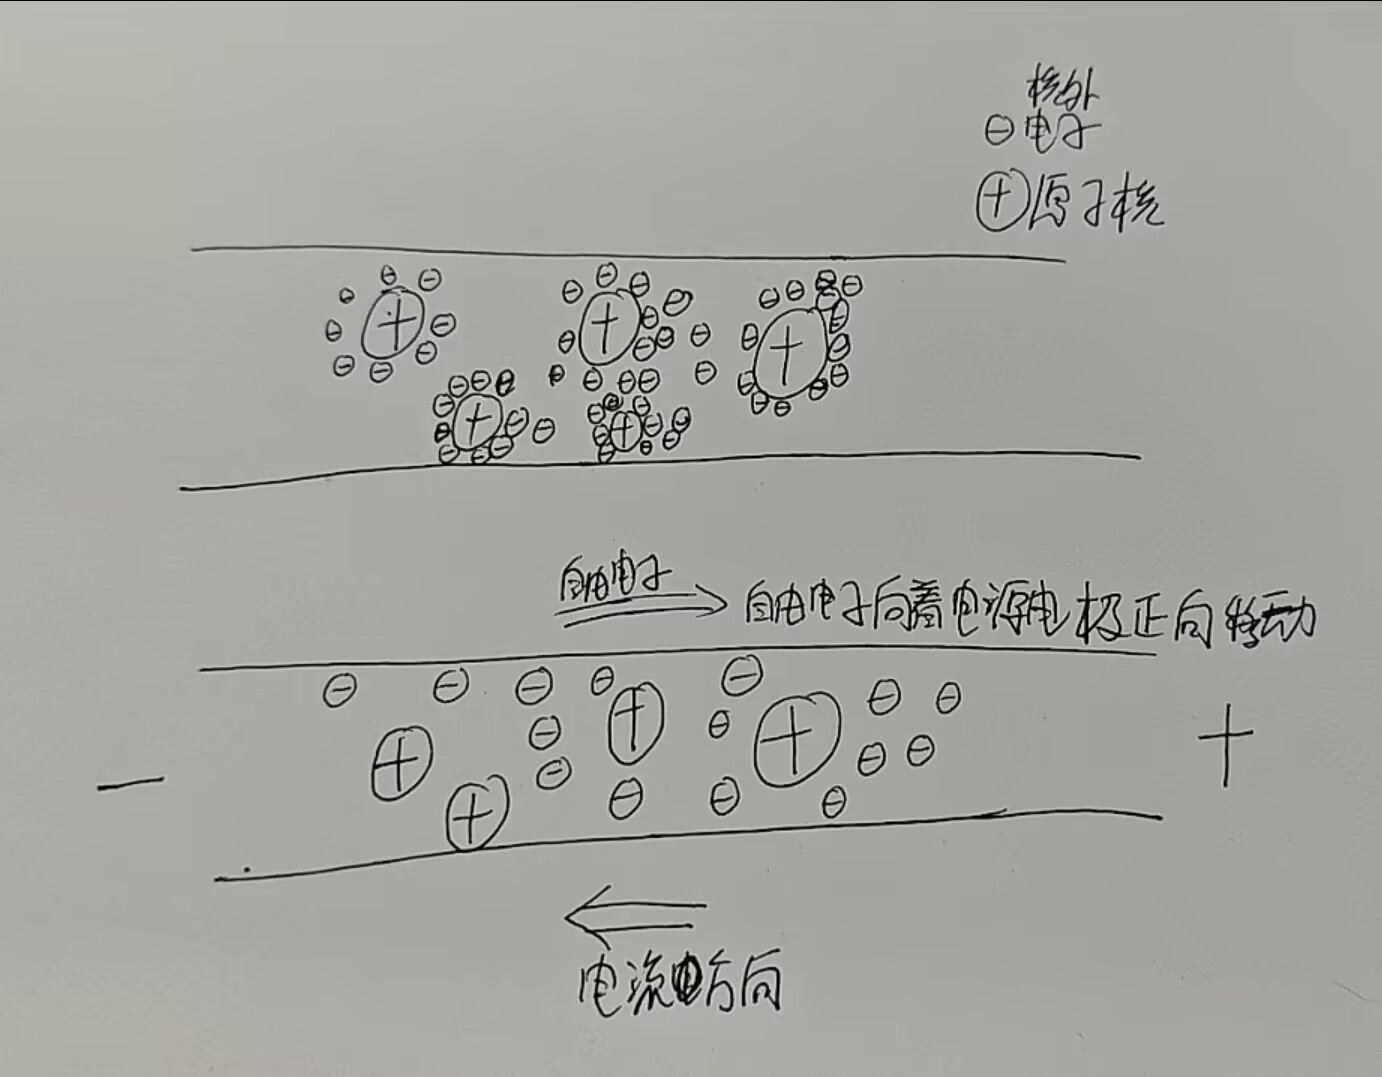 核外
⊖电子
⊕原子核
自由电子
自由电子向着电源电极正向移动
− +
电流方向